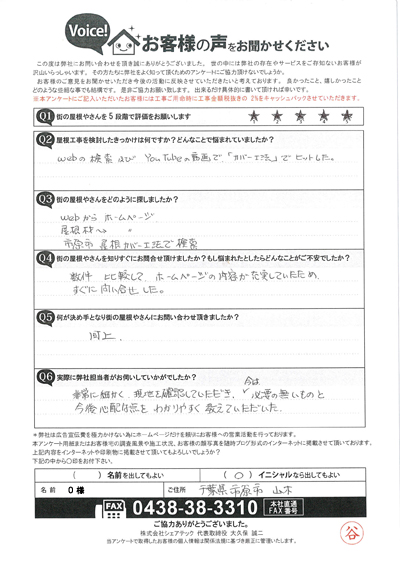 Voice! お客様の声をお聞かせください
この度は弊社にお問い合わせを頂き誠にありがとうございました。世の中には弊社の存在やサービスをご存知ないお客様が
沢山いらっしゃいます。その方たちに弊社をよく知って頂くためのアンケートにご協力頂けないでしょうか。
お客様のご意見をお聞かせいただき今後の活動に反映させていただきたいと考えております。良かったこと、嬉しかったこと
どのような些細な事でも結構です。是非ご協力お願い致します。出来るだけ具体的に書いて頂ければ幸いです。
※本アンケートにご記入いただいたお客様には工事ご用命時に工事金額税抜きの 2%をキャッシュバックさせていただきます。
Q1 街の屋根やさんを5段階で評価をお願いします ★ ★ ★ ★ ★
Q2 屋根工事を検討したきっかけは何ですか?どんなことで悩まれていましたか?
webの検索及び YouTubeの動画で「カバー工法」でヒットした。
Q3 街の屋根やさんをどのように探しましたか?
webから ホームページ
屋根材へ 〃
市原市 屋根カバー工法で検索
Q4 街の屋根やさんを知りすぐにお問合せ頂けましたか?もし悩まれたとしたらどんなことがご不安でしたか?
数件 比較して、ホームページの内容が充実していたため、
すぐに問い合せした。
Q5 何が決め手となり街の屋根やさんにお問い合わせ頂きましたか?
同上.
Q6 実際に弊社担当者がお伺いしていかがでしたか?
今は
非常に細かく、現地を確認していただき、必要の無いものと
今後心配な点を わかりやすく教えていただいた.
*弊社は広告宣伝費を極力かけない為にホームページだけを頼りにお客様への営業活動を行っております。
本アンケート用紙またはお客様宅の調査風景や施工状況、お客様の顔写真を随時ブログ形式のインターネットに掲載させて頂いております。
上記内容をインターネットや印刷物に掲載させて頂いてもよろしいでしょうか?
下記の中から○印をお付け下さい。
( )名前を出してもよい (○)イニシャルなら出してもよい
名前 O様 ご住所 千葉県市原市 山木
FAX 0438-38-3310 本社直通FAX番号
ご協力ありがとうございました。
株式会社シェアテック 代表取締役 大久保 誠二
当アンケートで取得したお客様の個人情報は関係法規に基づき厳正に管理いたします。
谷